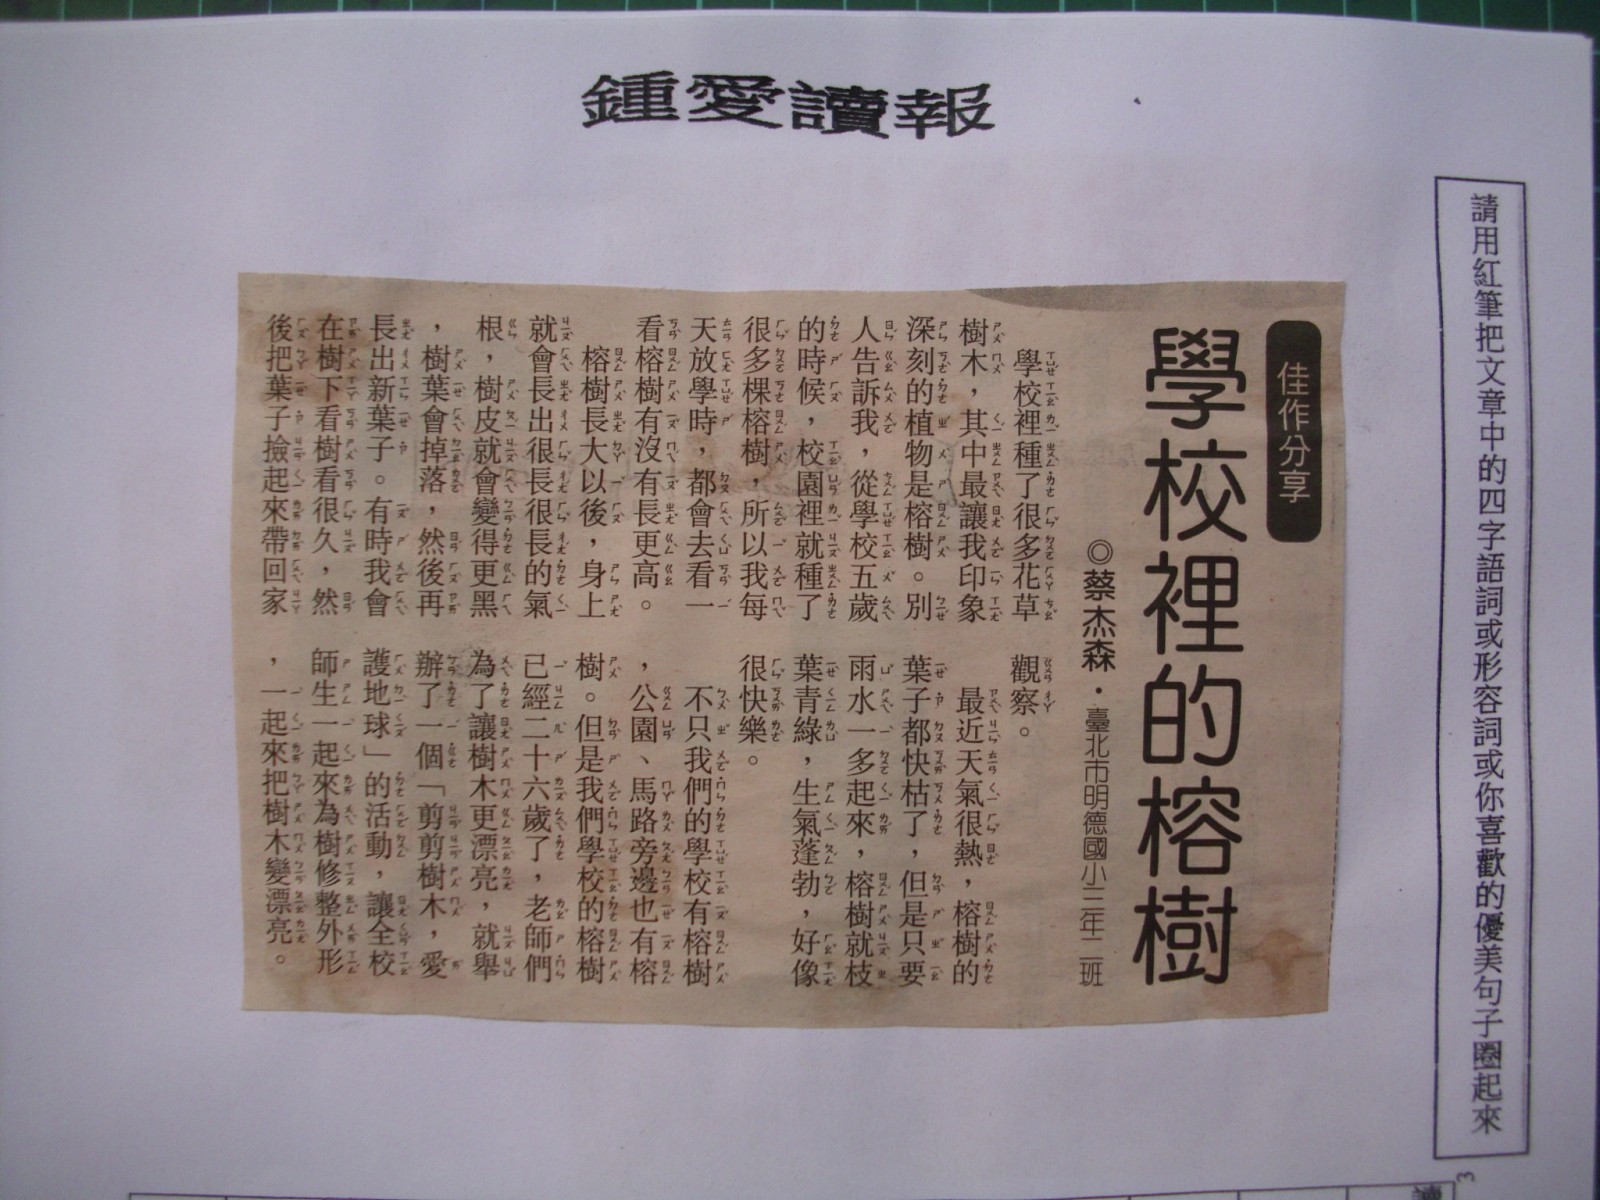 鍾愛讀報
請用紅筆把文章中的四字語詞或形容詞或你喜歡的優美句子圈起來
佳作分享
學校裡的榕樹
◎蔡杰森．臺北市明德國小三年二班
學校裡種了很多花草
樹木，其中最讓我印象
深刻的植物是榕樹。別
人告訴我，從學校五歲
的時候，校園裡就種了
很多棵榕樹，所以我每
天放學時，都會去看一
看榕樹有沒有長更高。
榕樹長大以後，身上
就會長出很長很長的氣
根，樹皮就會變得更黑
，樹葉會掉落，然後再
長出新葉子。有時我會
在樹下看樹看很久，然
後把葉子撿起來帶回家
觀察。
最近天氣很熱，榕樹的
葉子都快枯了，但是只要
雨水一多起來，榕樹就枝
葉青綠，生氣蓬勃，好像
很快樂。
不只我們的學校有榕樹
，公園、馬路旁邊也有榕
樹。但是我們學校的榕樹
已經二十六歲了，老師們
為了讓樹木更漂亮，就舉
辦了一個「剪剪樹木，愛
護地球」的活動，讓全校
師生一起來為樹修整外形
，一起來把樹木變漂亮。
3